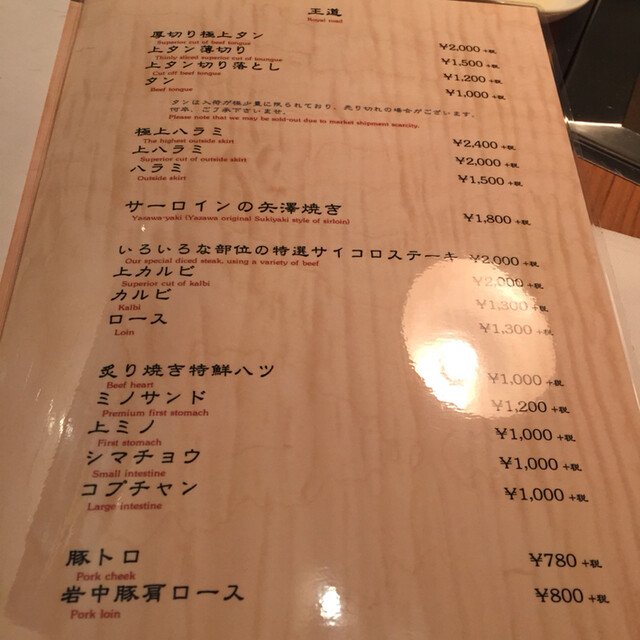 王道
Royal road
厚切り極上タン ¥2,000 +税
Superior cut of beef tongue
上タン薄切り ¥1,500 +税
Thinly sliced superior cut of toungue
上タン切り落とし ¥1,200 +税
Cut off beef tongue
タン ¥1,000 +税
Beef tongue
タンは入荷が極少量に限られており、売り切れの場合がございます。
何卒、ご了承下さいませ。
Please note that we may be sold-out due to market shipment scarcity.
極上ハラミ ¥2,400 +税
The highest outside skirt
上ハラミ ¥2,000 +税
Superior cut of outside skirt
ハラミ ¥1,500 +税
Outside skirt
サーロインの矢澤焼き ¥1,800 +税
Yazawa-yaki (Yazawa original Sukiyaki style of sirloin)
いろいろな部位の特選サイコロステーキ ¥2,000 +税
Our special diced steak, using a variety of beef
上カルビ ¥2,000 +税
Superior cut of kalbi
カルビ ¥1,300 +税
Kalbi
ロース ¥1,300 +税
Loin
炙り焼き特鮮ハツ ¥1,000 +税
Beef heart
ミノサンド ¥1,200 +税
Premium first stomach
上ミノ ¥1,000 +税
First stomach
シマチョウ ¥1,000 +税
Small intestine
コプチャン ¥1,000 +税
Large intestine
豚トロ ¥780 +税
Pork cheek
岩中豚肩ロース ¥800 +税
Pork loin